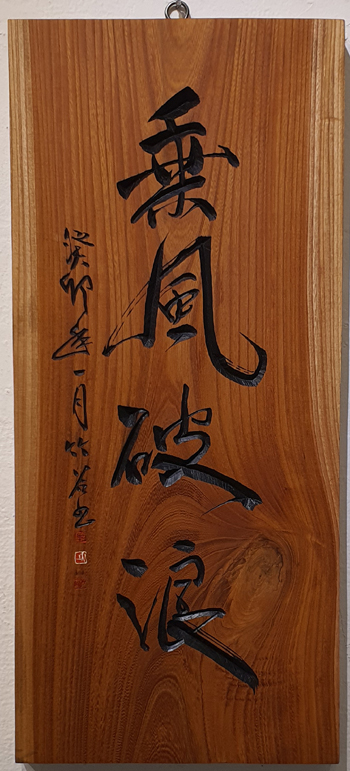 乗風破浪
癸卯年一月竹谷书